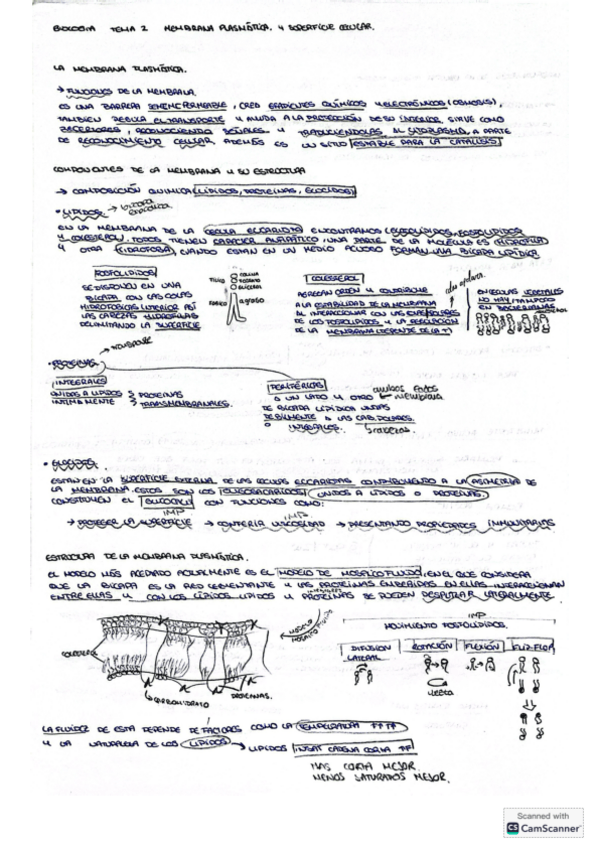 BIOLOGIA TEMA 2 MEMBRANA PLASMÁTICA Y SUPERFICIE CELULAR.
LA MEMBRANA PLASMÁTICA.
→ FUNCIONES DE LA MEMBRANA
ES UNA BARRERA SEMIPERMEABLE, CREA GRADIENTES QUÍMICOS Y ELECTRÓNICOS (OSMOSIS),
TAMBIEN REGULA EL TRANSPORTE Y AYUDA A LA PROTECCIÓN DE SU INTERIOR, SIRVE COMO
RECEPTORES, RECONOCIENDO SEÑALES Y TRADUCIENDOLAS AL CITOPLASMA, A PARTE
DE RECONOCIMIENTO CELULAR, ADEMÁS ES UN SITIO ESTABLE PARA LA CATALISIS
COMPONENTES DE LA MEMBRANA Y SU ESTRUCTURA
→ COMPOSICIÓN QUIMICA (LÍPIDOS, PROTEÍNAS, GLÚCIDOS)
• LIPIDOS → bicapa lipidica
EN LA MEMBRANA DE LA CELULA EUCARIOTA ENCONTRAMOS GLUCOLÍPIDOS, FOSFOLÍPIDOS
Y COLESTEROL. TODOS TIENEN CARACTER ANFIPÁTICO (UNA PARTE DE LA MOLECULA ES HIDROFILA
Y OTRA HIDROFOBA), CUANDO ESTAN EN UN MEDIO ACUOSO FORMAN UNA BICAPA LIPÍDICA
FOSFOLIPIDOS
SE DISPONEN EN UNA
BICAPA CON LAS COLAS
HIDROFOBICAS INTERIOR ASÍ
LAS CABEZAS HIDROFILAS
DELIMITANDO LA SUPERFICIE
COLINA
FOSFATO
GLICEROL
COLESTEROL
AGREGAN ORDEN Y CONTRIBUYE
A LA ESTABILIDAD DE LA MEMBRANA
AL INTERACCIONAR CON LAS CABEZAS POLARES
DE LOS FOSFOLIPIDOS Y LA REGULACIÓN
DE LA MEMBRANA (DEPENDE DE LA Tª)
EN CELULAS VEGETALES
NO HAY, TAMPOCO
EN BACTERIANAS
• PROTEINAS
INTEGRALES
UNIDAS A LIPIDOS
INTIMAMENTE
→ PROTEINAS
→ TRANSMEMBRANALES.
PERIFÉRICAS
A UN LADO Y OTRO
DE BICAPA LIPÍDICA UNIDAS
DEBILMENTE A LAS CAB. POLARES
O INTEGRALES.
membrana
• GLUCIDOS.
ESTAN EN LA SUPERFICIE EXTERNA DE LAS CELULAS EUCARIOTAS CONTRIBUYENDO A LA ASIMETRIA DE
LA MEMBRANA. ESTOS SON LOS OLIGOSACARIDOS UNIDOS A LÍPIDOS O PROTEÍNAS.
CONSTITUYEN EL GLICOCALIX CON FUNCIONES COMO:
IMP IMP
→ PROTEGER LA SUPERFICIE → CONFERIR VISCOSIDAD → PRESENTANDO PROPIEDADES INMUNITARIAS
ESTRUCTURA DE LA MEMBRANA PLASMÁTICA.
EL MODELO MÁS ACEPTADO ACTUALMENTE ES EL MODELO DE MOSAICO FLUIDO, EN EL QUE CONSIDERA
QUE LA BICAPA ES LA RED CEMENTANTE Y LAS PROTEINAS EMBEBIDAS EN ELLAS INTERACCIONAN
ENTRE ELLAS Y CON LOS LÍPIDOS. LIPIDOS Y PROTEINAS SE PUEDEN DESPLAZAR LATERALMENTE
IMP
MOVIMIENTO FOSFOLIPIDOS.
DIFUSION LATERAL
ROTACIÓN
FLEXIÓN
FLIP-FLOP
COLESTEROL
CARBOHIDRATO
PROTEINAS.
LA FLUIDEZ DE ESTA DEPENDE DE FACTORES COMO LA TEMPERATURA
Y LA NATURALEZA DE LOS LÍPIDOS → LIPIDOS INSAT CADENA CORTA
MAS CORTA MEJOR.
MENOS SATURADOS MEJOR.
Scanned with
CS CamScanner